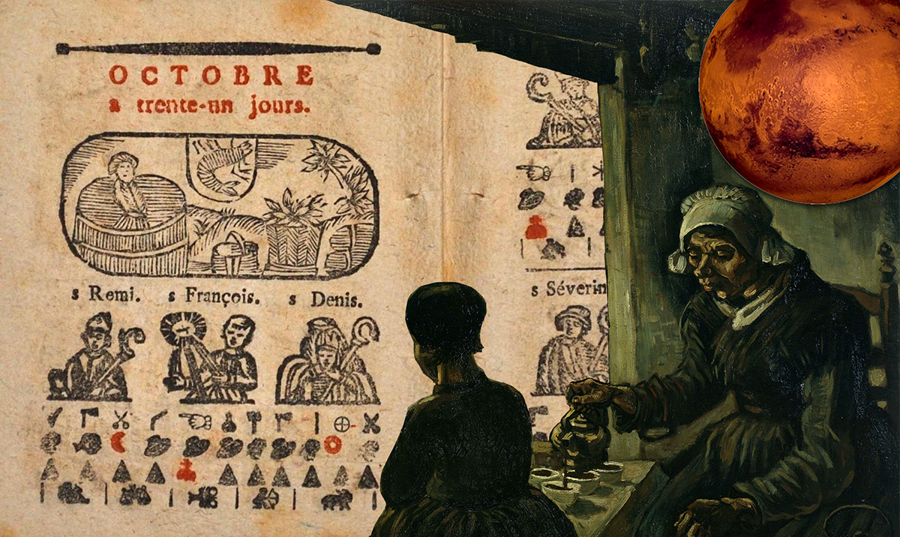 OCTOBRE
a trente-un jours.
s Remi. s François. s Denis.
s Séverin